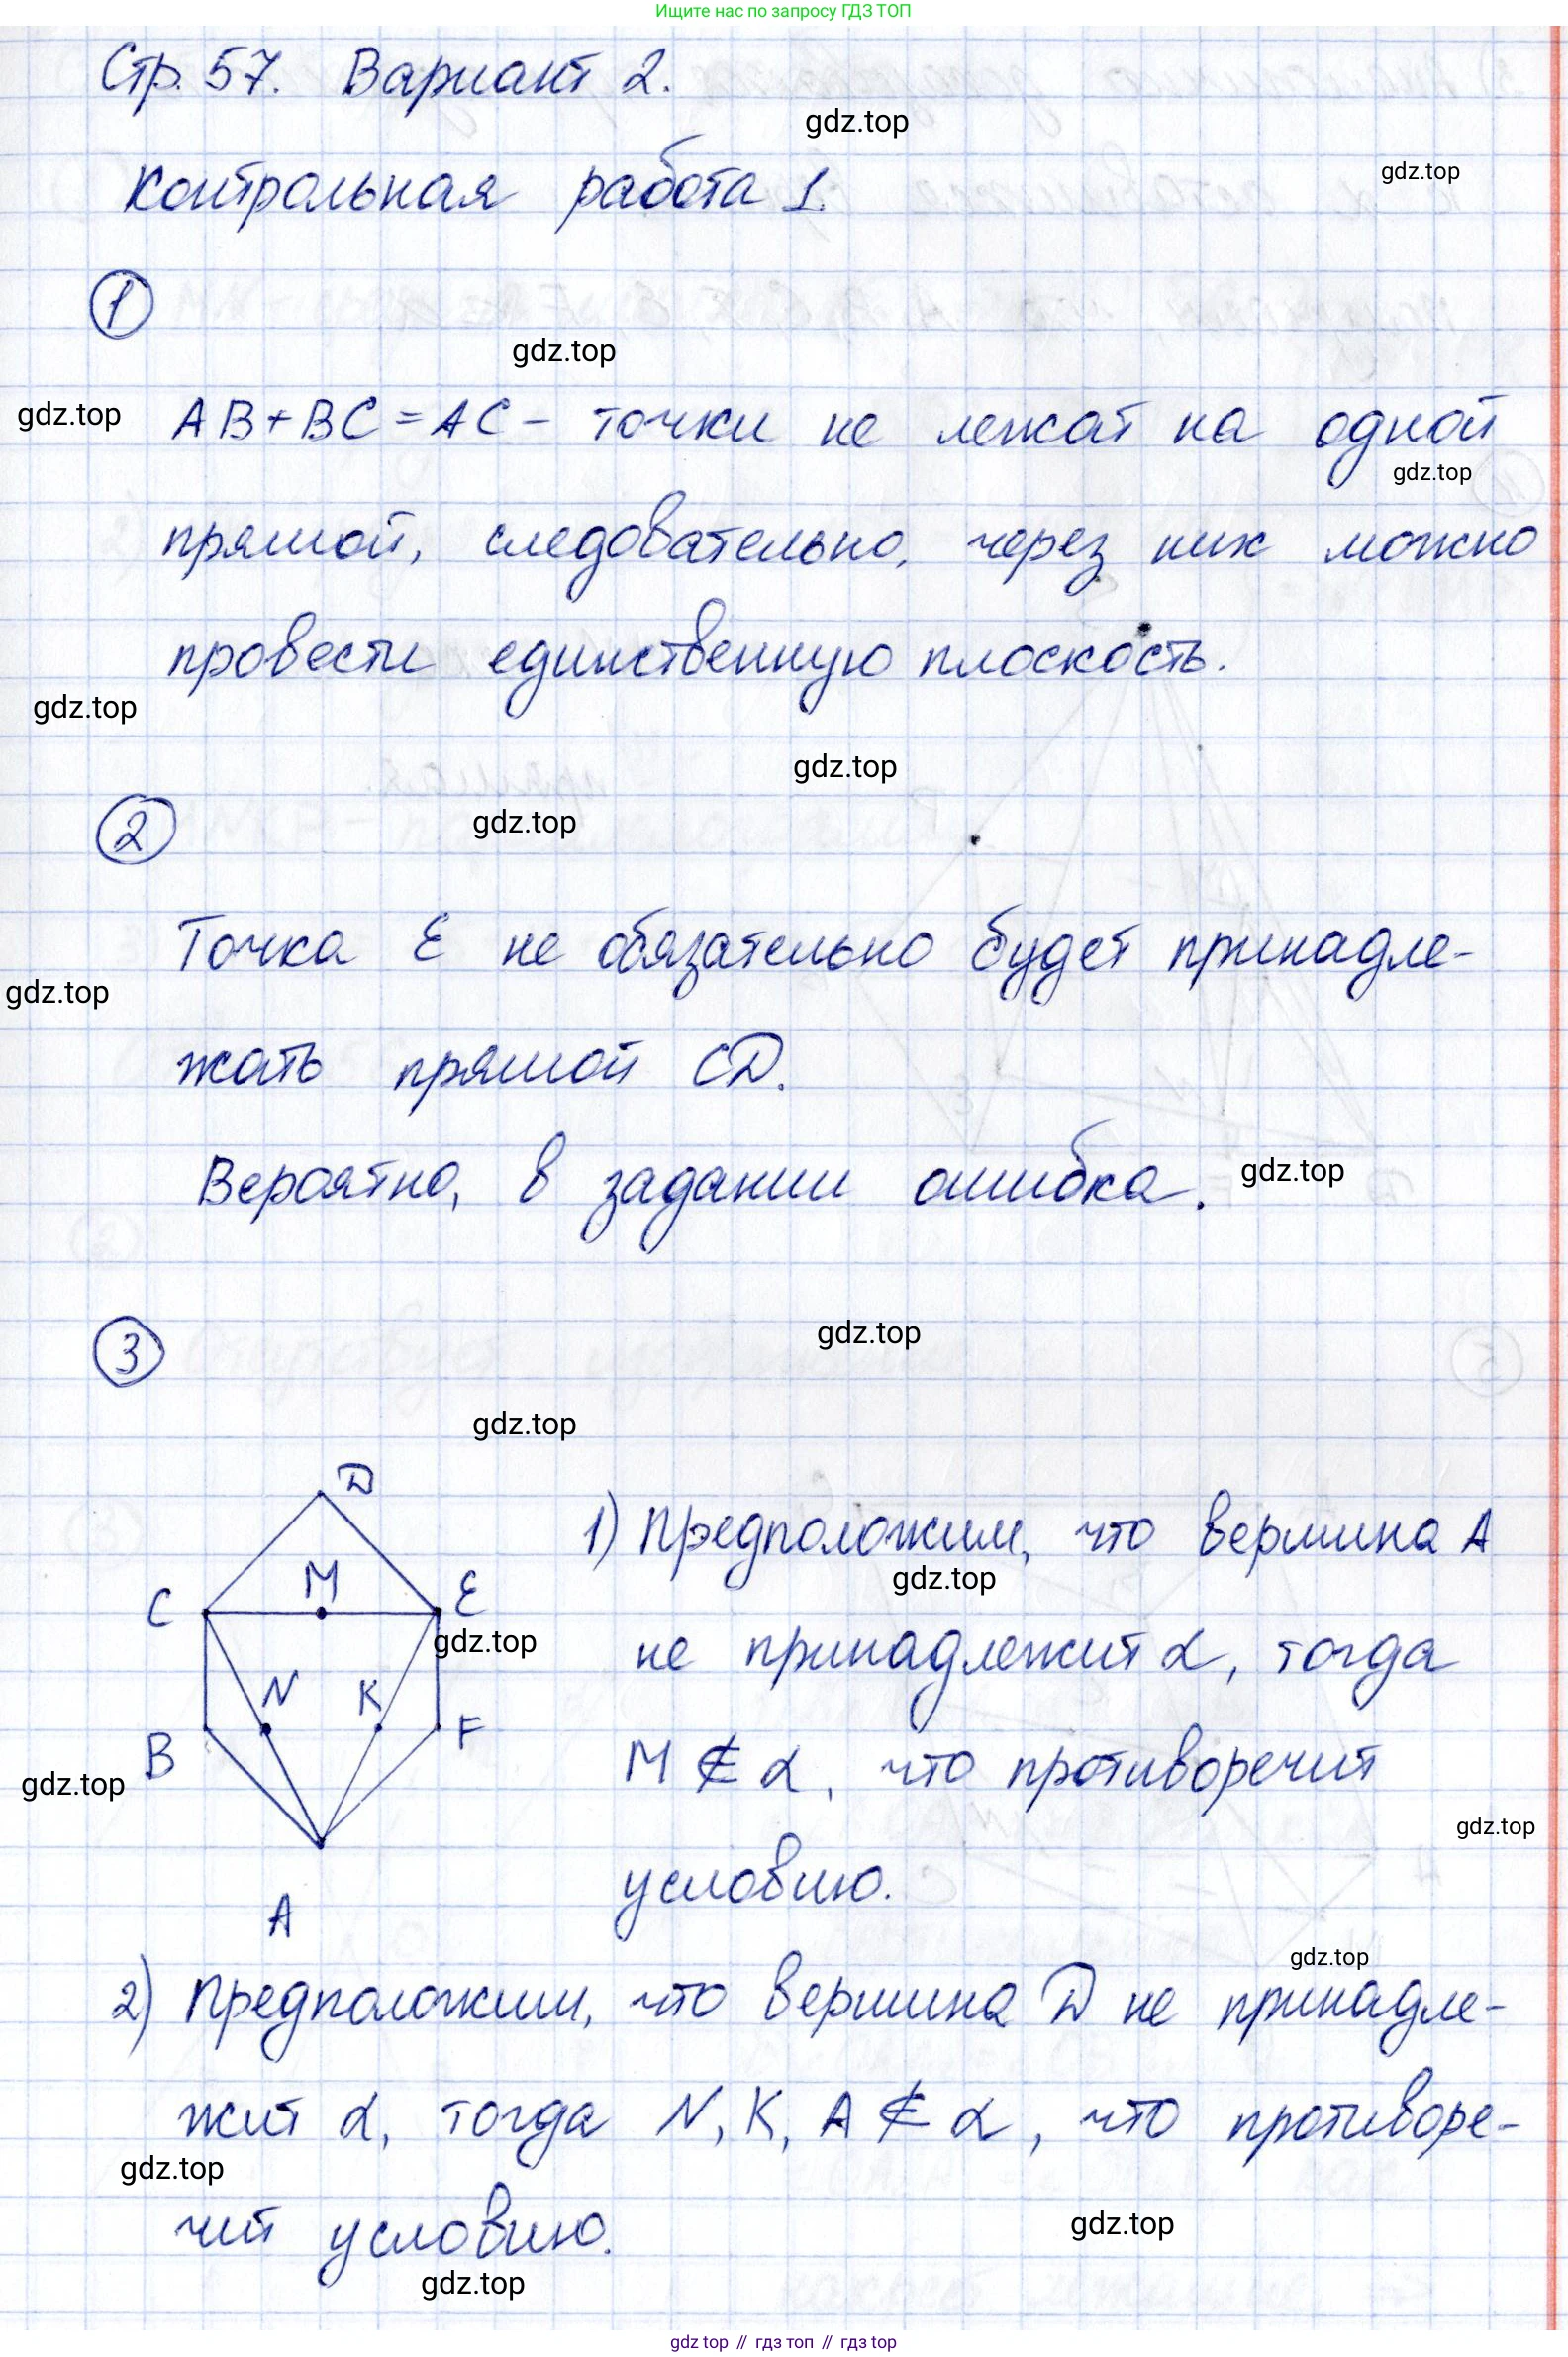 Ищите нас по запросу ГДЗ ТОП
Стр. 57. Вариант 2.
gdz.top
Контрольная работа 1.
gdz.top
1
gdz.top
gdz.top
AB+BC=AC – точки не лежат на одной
gdz.top
прямой, следовательно, через них можно
провести единственную плоскость.
gdz.top
gdz.top
2
gdz.top
Точка E не обязательно будет принадле-
gdz.top
жать прямой CD.
Вероятно, в задании ошибка.
gdz.top
3
gdz.top
gdz.top
D
M
C
E
gdz.top
N
K
B
F
gdz.top
A
1) Предположим, что вершина A
gdz.top
не принадлежит α, тогда
M ∉ α, что противоречит
gdz.top
условию.
gdz.top
2) Предположим, что вершина D не принадле-
жит α, тогда N, K, A ∉ α, что противоре-
gdz.top
чит условию.
gdz.top
gdz.top
gdz top // гдз топ // гдз top